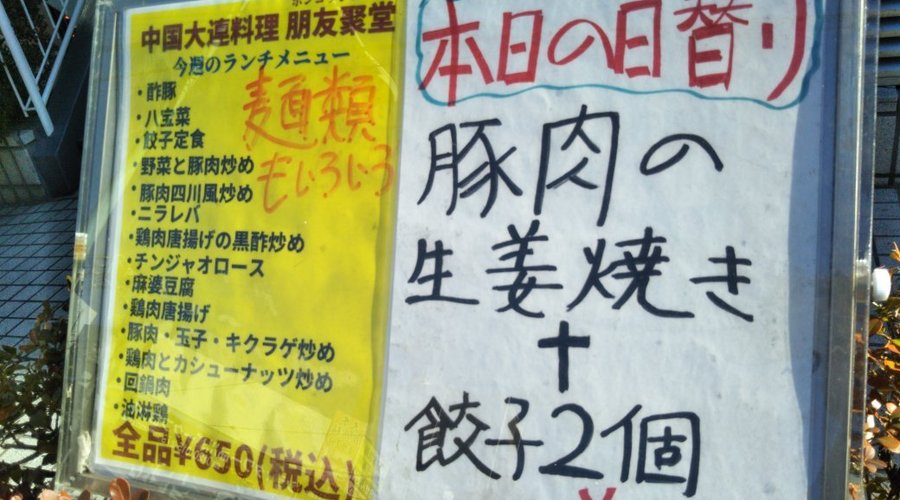 中国大連料理 朋友聚堂
今週のランチメニュー
・酢豚
・八宝菜
・餃子定食
・野菜と豚肉炒め
・豚肉四川風炒め
・ニラレバ
・鶏肉唐揚げの黒酢炒め
・チンジャオロース
・麻婆豆腐
・鶏肉唐揚げ
・豚肉・玉子・キクラゲ炒め
・鶏肉とカシューナッツ炒め
・回鍋肉
・油淋鶏
全品¥650(税込)
麺類
もいろいろ
本日の日替り
豚肉の
生姜焼き
+
餃子2個